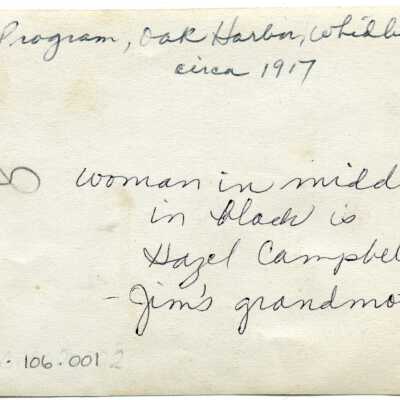 Program, Oak Harbor, Whidb
circa 1917
woman in midd
in black is
Hazel Campbel
- Jim's grandmo
106.001 2